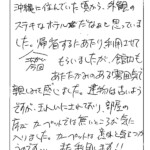 沖縄に住んでいた頃から、外観の
ステキなホテルだなぁと思ってい
ました。帰省するにあたり利用させて
今回
もらいましたが、館内も
あたたかみのある雰囲気で
親しみを感じました。建物は古いよう
ですが、きれいにされており、部屋の
床がカーペットでは無いところが気に
入りました。カーペットは
のです…。またお願いします!!